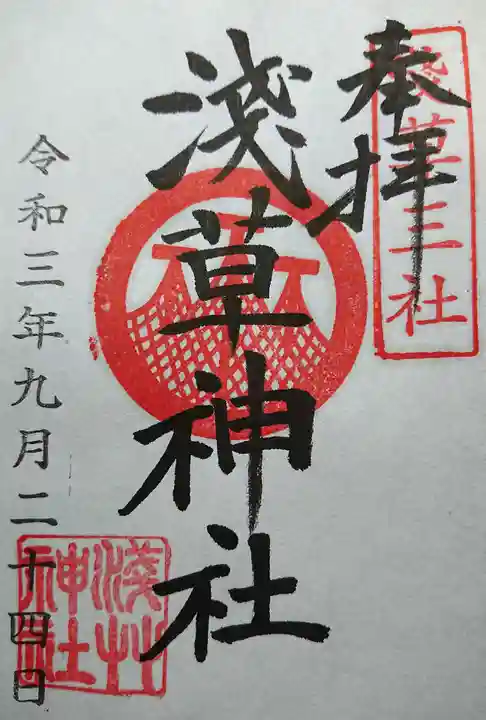 奉拝
淺草三社
淺草神社
令和三年九月二十四日
淺艸神社